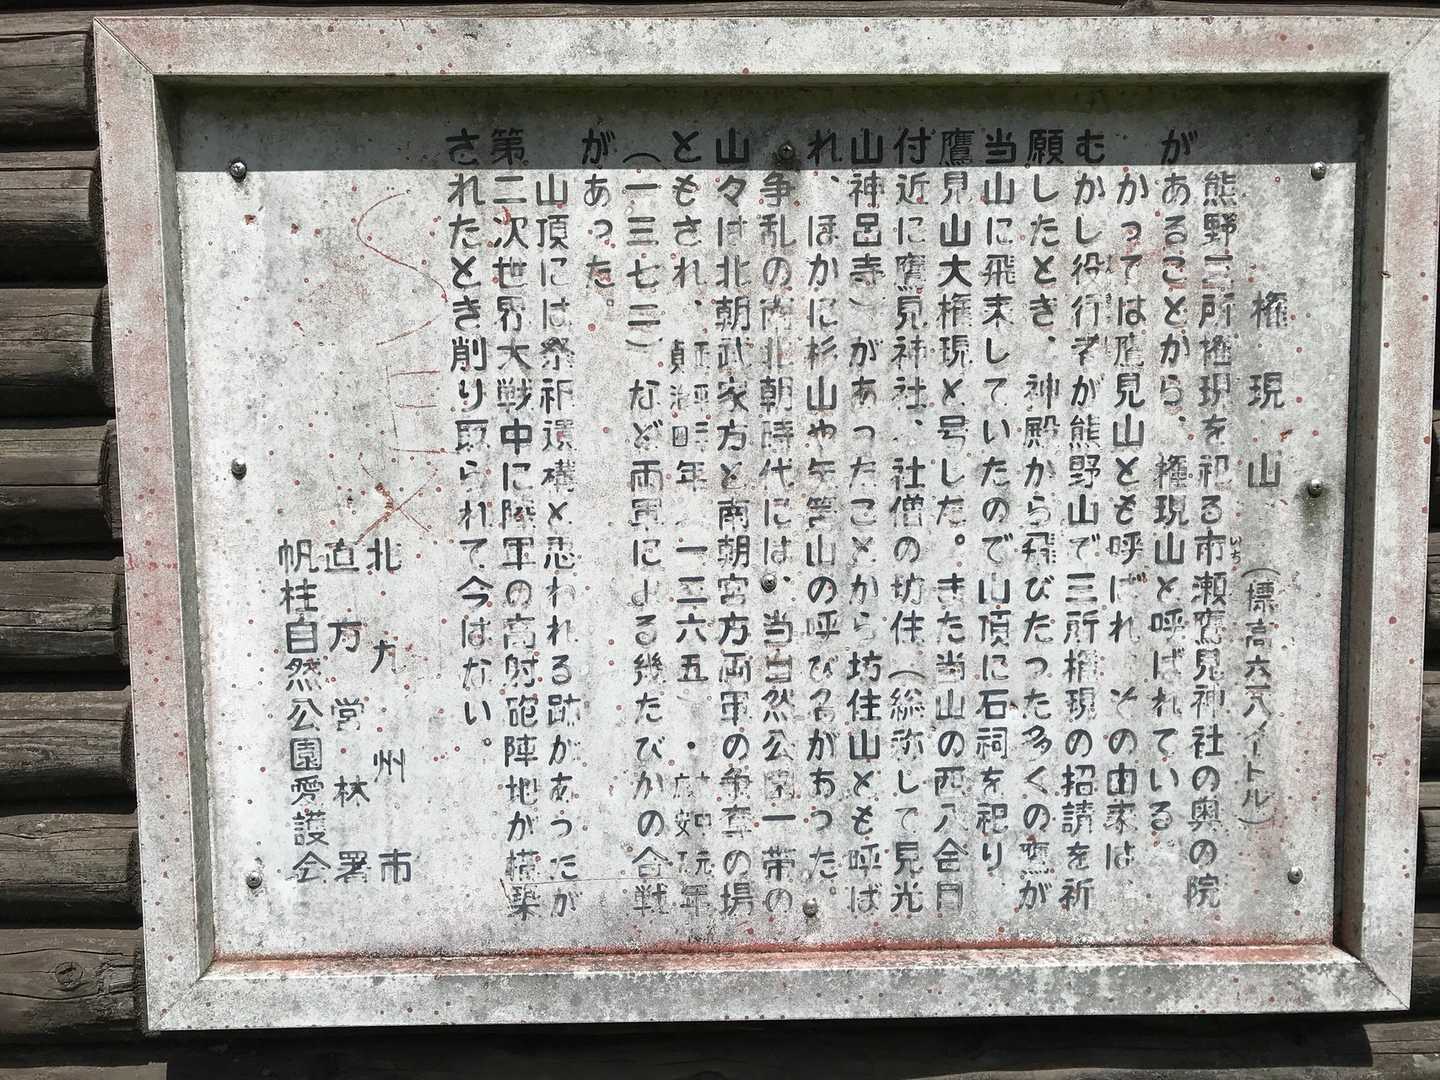 権現山(標高六一八メートル)
熊野三所権現を祀る市瀬鷹見神社の奥の院
いち
があることから、権現山と呼ばれている
かっては鷹見山とも呼ばれ、その由来は
むかし役行者が熊野山で三所権現の招請を祈
願したとき、神殿から飛びたった多くの鷹が
当山に飛来していたので山頂に石祠を祀り
鷹見山大権現と号した。また当山の西八合目
付近に鷹見神社、社僧の坊住(総称して見光
山神呂寺)があったことから坊住山とも呼ば
れ、ほかに杉山や矢筈山の呼び名があった。
争乱の南北朝時代には、当自然公園一帯の
山々は北朝武家方と南朝宮方両軍の争奪の場
ともされ、年(一三六五)・年
(一三七二)など両軍による幾たびかの合戦
があった。
山頂には祭祀遺構と思われる跡があったが
第二次世界大戦中に陸軍の高射砲陣地が構築
されたとき削り取られて今はない。
北九州市
直方営林署
帆柱自然公園愛護会